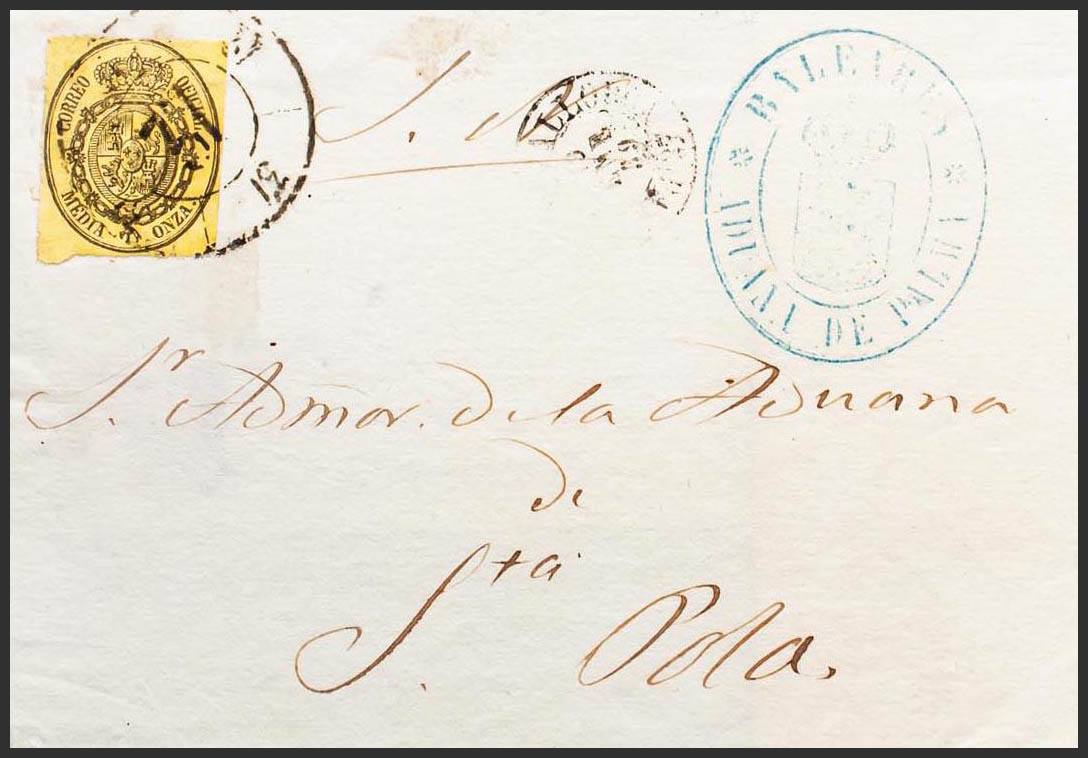 CORREO OFICIAL
MEDIA ONZA.
31
S. N.
BALEARES
ADUANA DE PALMA
Sr Admor. de la Aduana
de
Sta. Pola.